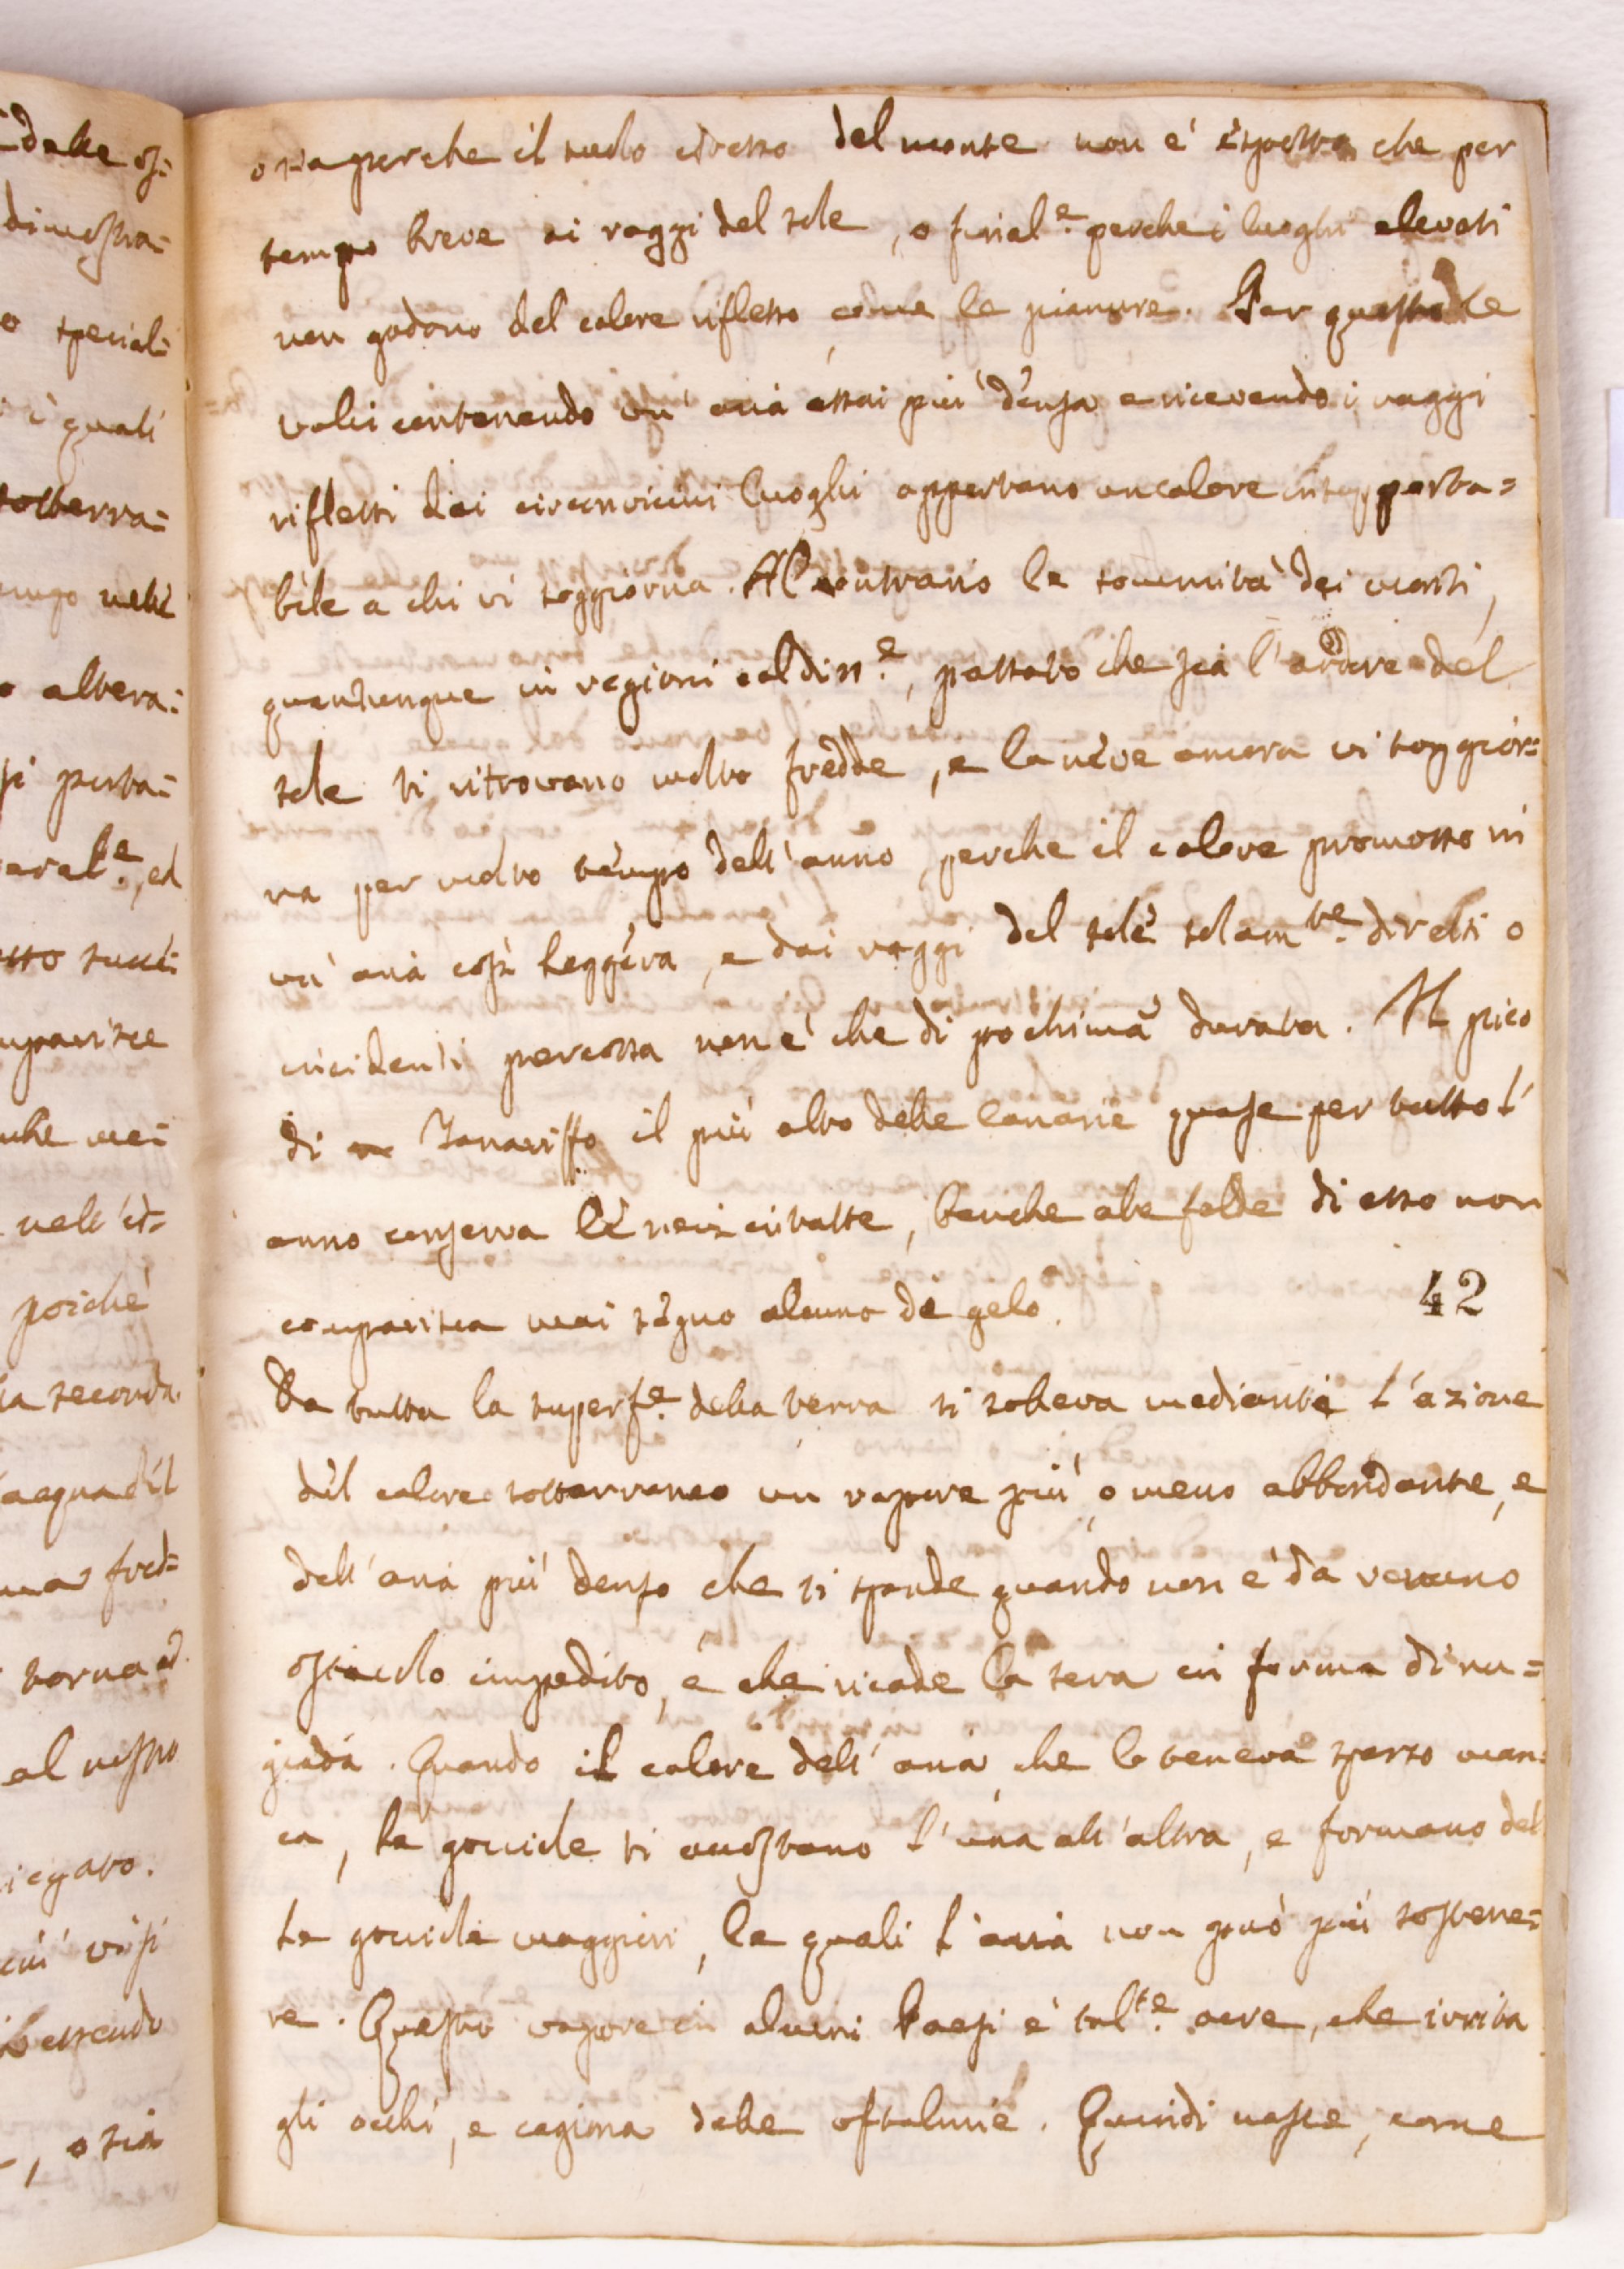 o sia perche il suolo stesso del monte non e' esposto che per
tempo breve ai raggi del sole, o final.e perche i luoghi elevati
non godono del calore riflesso come le pianure. Per questo le
valli contenendo un' aria assai più densa e ricevendo i raggi
riflessi dai circonvicini luoghi apportano un calore insopporta=
bile a chi vi soggiorna. Al contrario le sommità dei monti,
quantunque in regioni caldiss.e, passato che sia l'ardore del
sole si ritrovano molto fredde, e la neve ancora vi soggior=
na per molto tempo dell'anno, perche il calore promosso in
un' aria così leggera, e dai raggi del sole solam.te diretti o
incidenti percossa non e' che di pochima durata. Il pico
di Tanariffo il più alto delle Canarie quase per tutto l'
anno conserva le nevi intatte, benche alle falde di esso non
comparisca mai segno alcuno di gelo.
42
Da tutta la superf.e della terra si solleva mediante l'azione
del calore sotterraneo un vapore più, o meno abbondante, e
dell'aria più denso che si spande quando non e' da veruno
ostacolo impedito, e che ricade la sera in forma di ru=
giada. Quando il calore dell'aria che lo teneva sparso man=
ca, le goccicle si accostano l'una all'altra, e formano del=
le goccicle maggiori, le quali l'aria non può più sostene=
re. Questo vapore in alcuni Paesi e' tal.te acre, che irrita
gli occhi, e cagiona delle oftalmie. Quindi nasce, come
dalle os=
dimostra=
o special=
i quali
sotterra=
nelle
o altera=
si porta=
eral.e, ed
esso succe=
mparisce
che nei
nell'es=
poichè
la seconda
acqua del
fred=
torna ad
al nostro
iegato.
essendo
, o sia